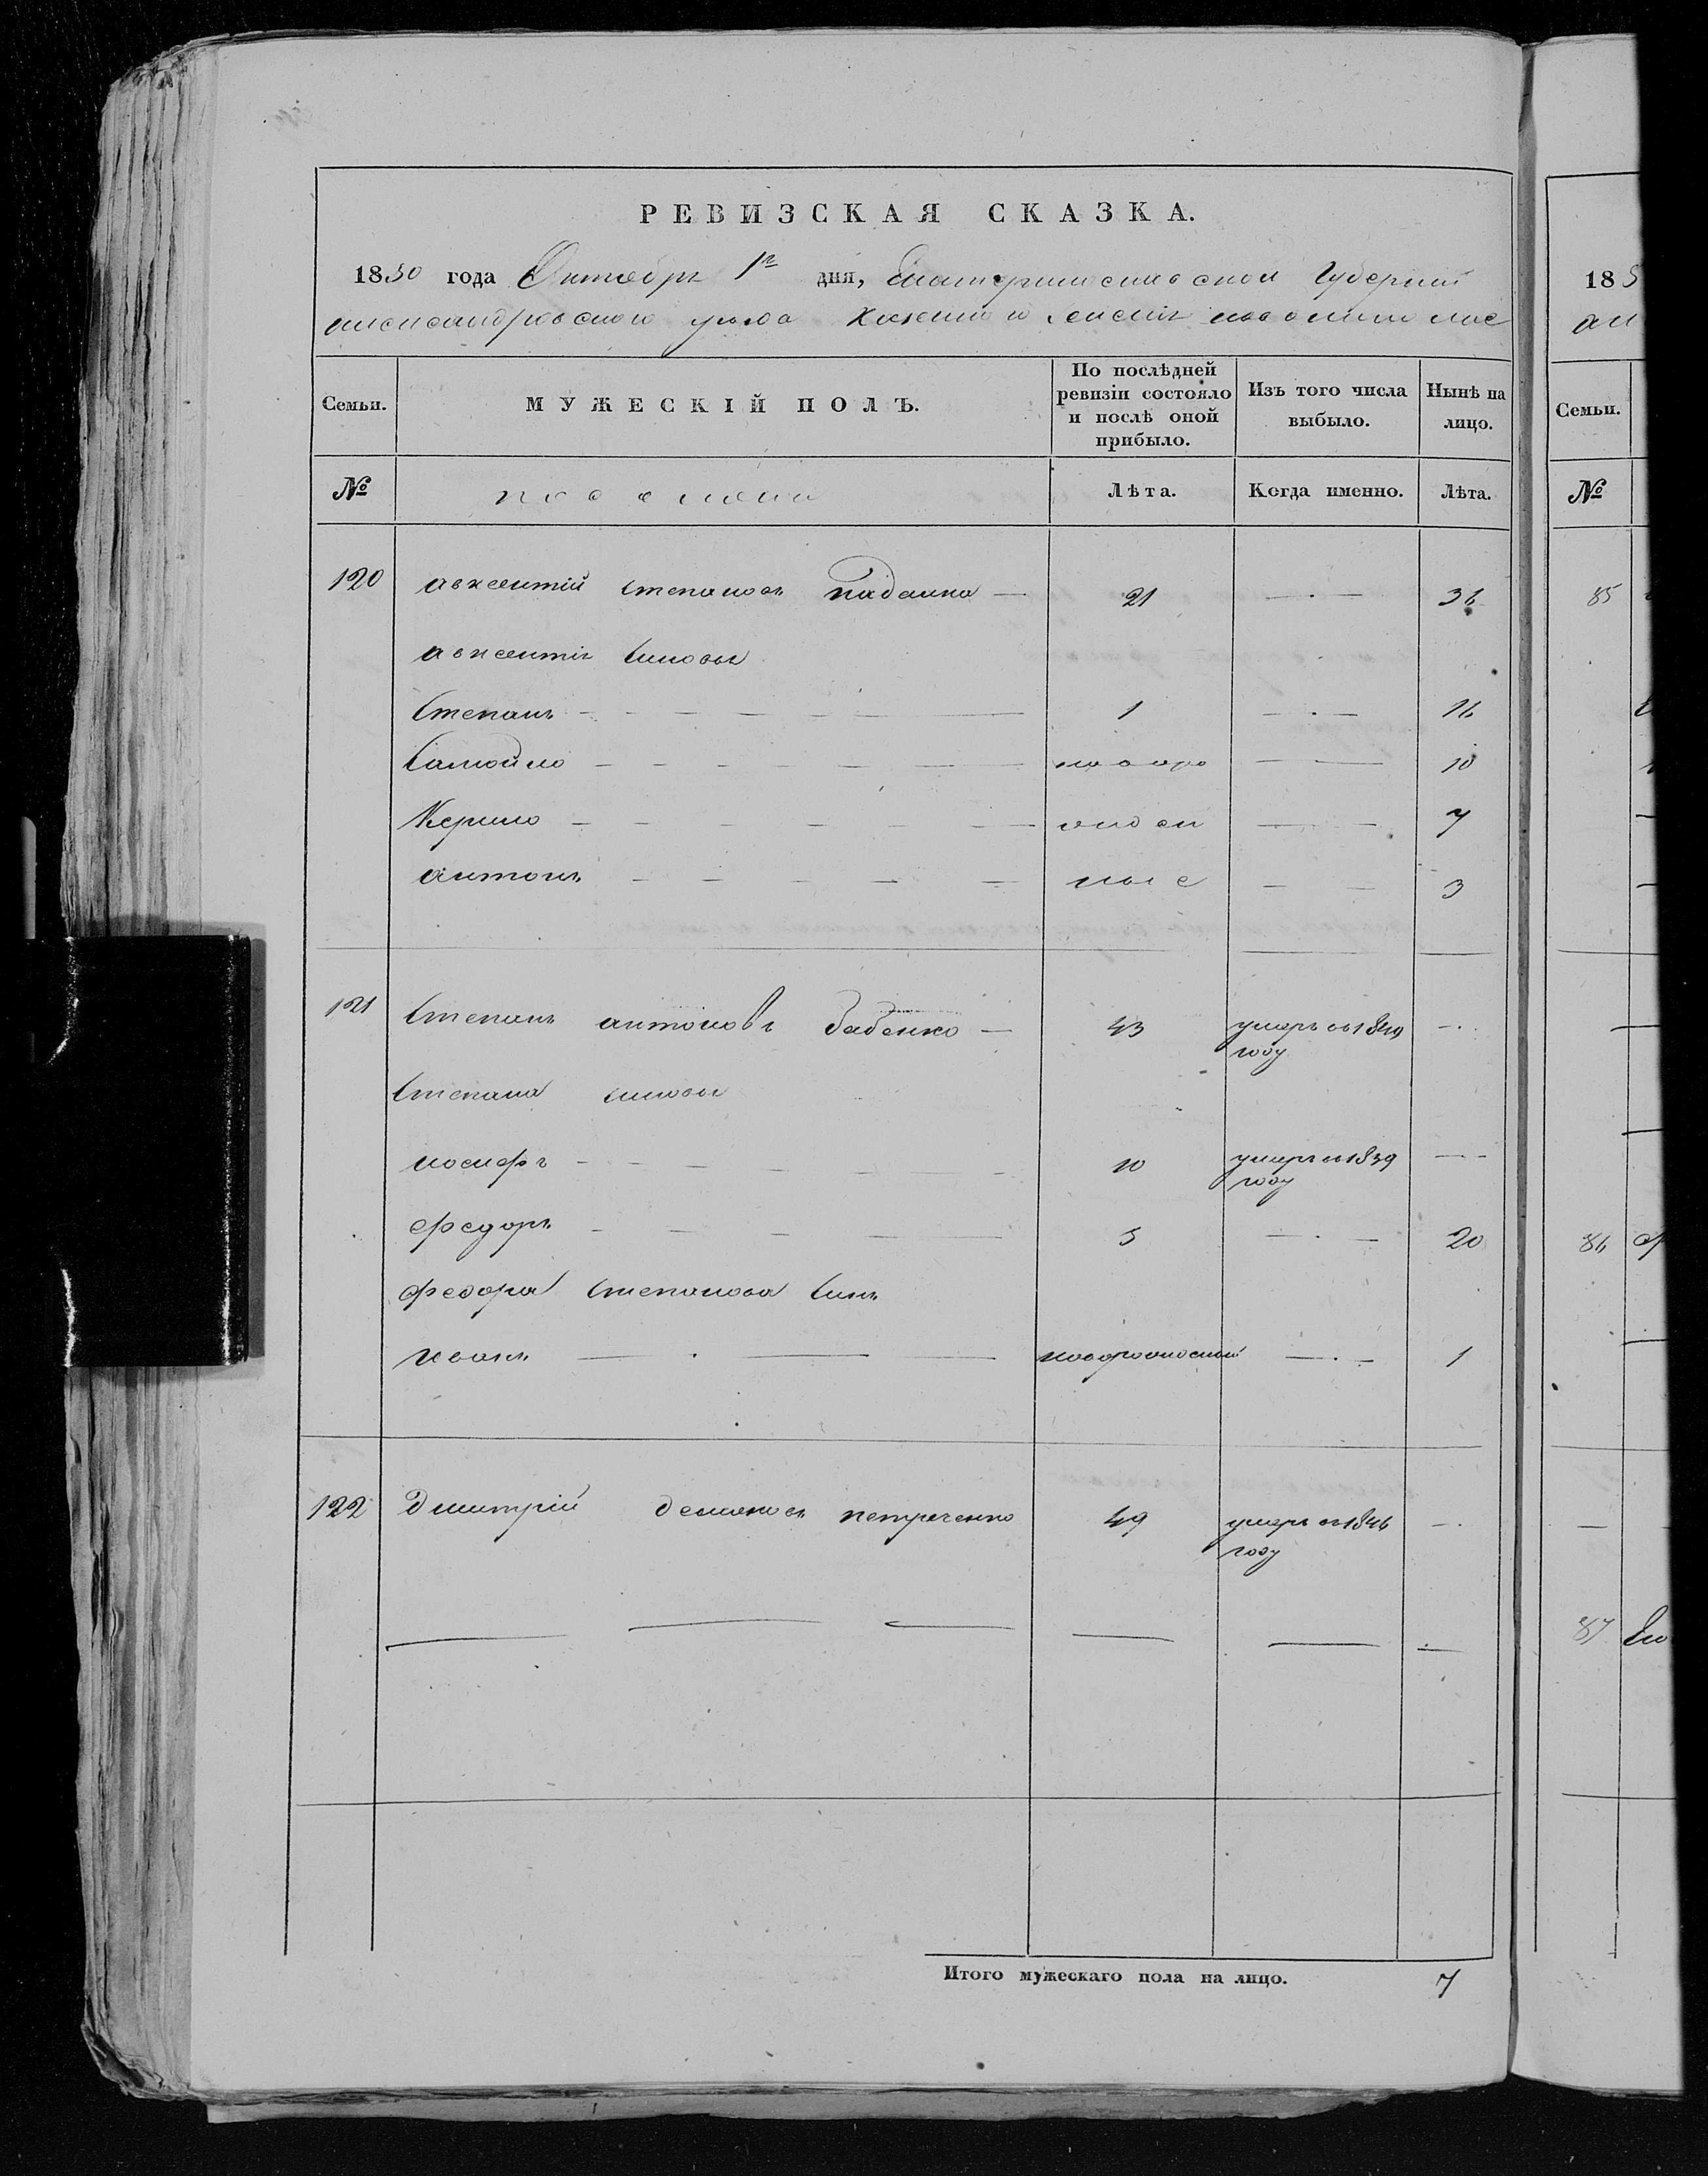 РЕВИЗСКАЯ СКАЗКА.
1850 года Октября 1го дня, Екатеринославской Губернии
александровского уезда казенного селения
Семьи. МУЖЕСКІЙ ПОЛЪ. По послѣдней ревизіи состояло и послѣ оной прибыло. Изъ того числа выбыло. Нынѣ на лицо.
№ Лѣта. Когда именно. Лѣта.
120 авксентий степановъ 21 — . — 36
авксентія сыновья
Степанъ 1 — . — 16
Самойло новоро — 10
Кирило жден — 7
антонъ ные — 3
121 Степанъ антоновъ бабенко — 43 умеръ въ 1849 году — .
Степана сыновья
иосифъ 10 умеръ въ 1839 году —
федоръ 5 — . — 20
федора Степанова сынъ
иванъ новорожденный — . — 1
122 дмитрій петренко 49 умеръ въ 1846 году — .
Итого мужескаго пола на лицо. 7
185
ал
Семьи.
№
85
86
87